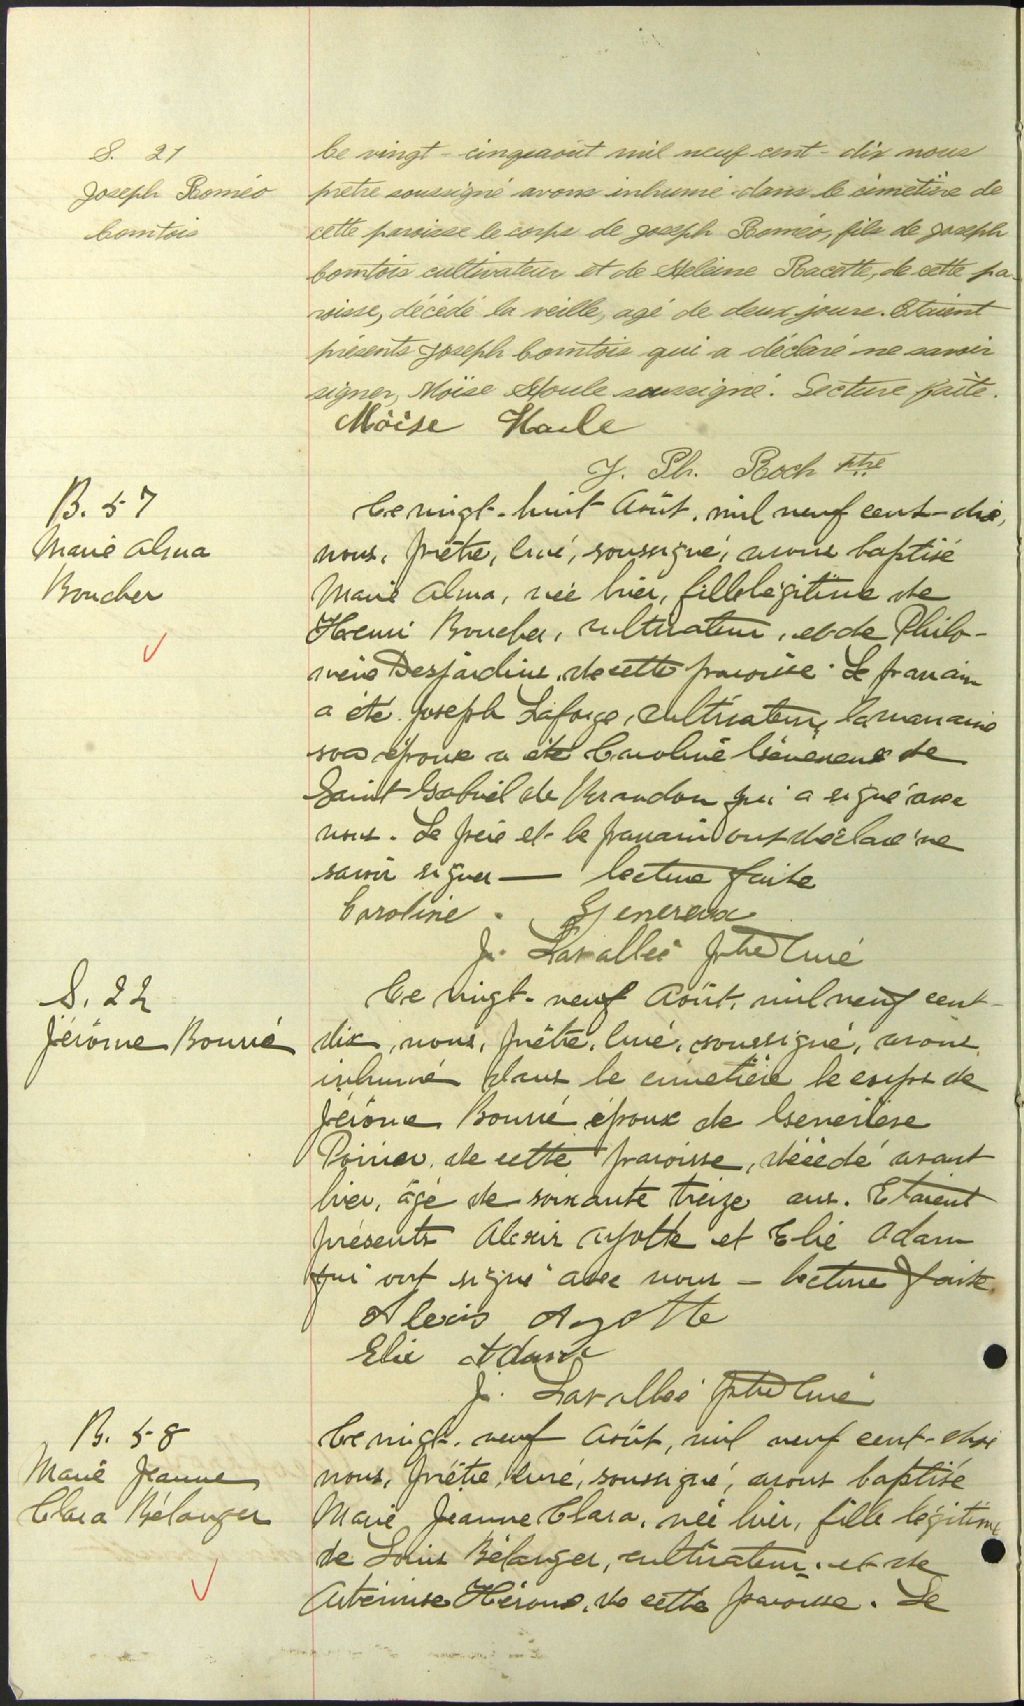 S. 21
Joseph Roméo
Comtois
Ce vingt-cinq août mil neuf cent-dix nous
prêtre soussigné avons inhumé dans le cimetière de
cette paroisse le corps de Joseph Roméo, fils de Joseph
Comtois cultivateur et de Heleine Racette, de cette pa-
roisse, décédé la veille, agé de deux jours. Etaient
présents Joseph Comtois qui a déclaré ne savoir
signer, Moïse Houle soussigné. Lecture faite.
Moïse Houle
J. Ph. Roch ptre
B. 57
Marie Alma
Boucher
Ce vingt-huit Août, mil neuf cent-dix,
nous, prêtre, curé, soussigné, avons baptisé
Marie Alma, née hier, fille légitime de
Henri Boucher, cultivateur, et de Philo-
mène Desjardins, de cette paroisse. Le parrain
a été Joseph Laforge, cultivateur, la marraine
son épouse a été Caroline Généreux de
Saint Gabriel de Brandon qui a signé avec
nous. Le père et le parrain ont déclaré ne
savoir signer — lecture faite
Caroline Genereux
J. Lavallée ptre Curé
S. 22
Jérôme Bourré
Ce vingt-neuf Août, mil neuf cent-
dix, nous, prêtre, curé, soussigné, avons
inhumé dans le cimetière le corps de
Jérôme Bourré époux de Geneviève
Poirier, de cette paroisse, décédé avant
hier, âgé de soixante treize ans. Etaient
présents Alexis Ayotte et Elie Adam
qui ont signé avec nous — lecture faite.
Alexis Ayotte
Elie Adam
J. Lavallée ptre Curé
B. 58
Marie Jeanne
Clara Bélanger
Ce vingt-neuf Août, mil neuf cent-dix
nous, prêtre, curé, soussigné, avons baptisé
Marie Jeanne Clara, née hier, fille légitime
de Louis Bélanger, cultivateur, et de
Artémise Héroux, de cette paroisse. Le